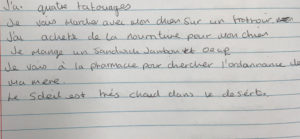 J'ai quatre tatouages
Je vais marcher avec mon chien sur un trottoir
J'ai acheté de la nourriture pour mon chien
Je mange un sandwich Jambon et oeuf
Je vais à la pharmacie pour chercher l'ordonnance de
ma mère.
Le Soleil est très chaud dans le déserts.